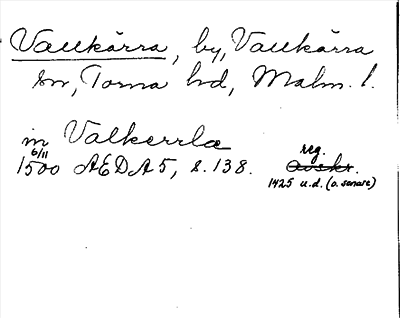 Vallkärra, by, Vallkärra
sn, Torna hd, Malm. l.
in Valkerrla
6/11 reg.
1500 AEDA 5, s. 138. avskr.
1425 u.d. (o. senare)